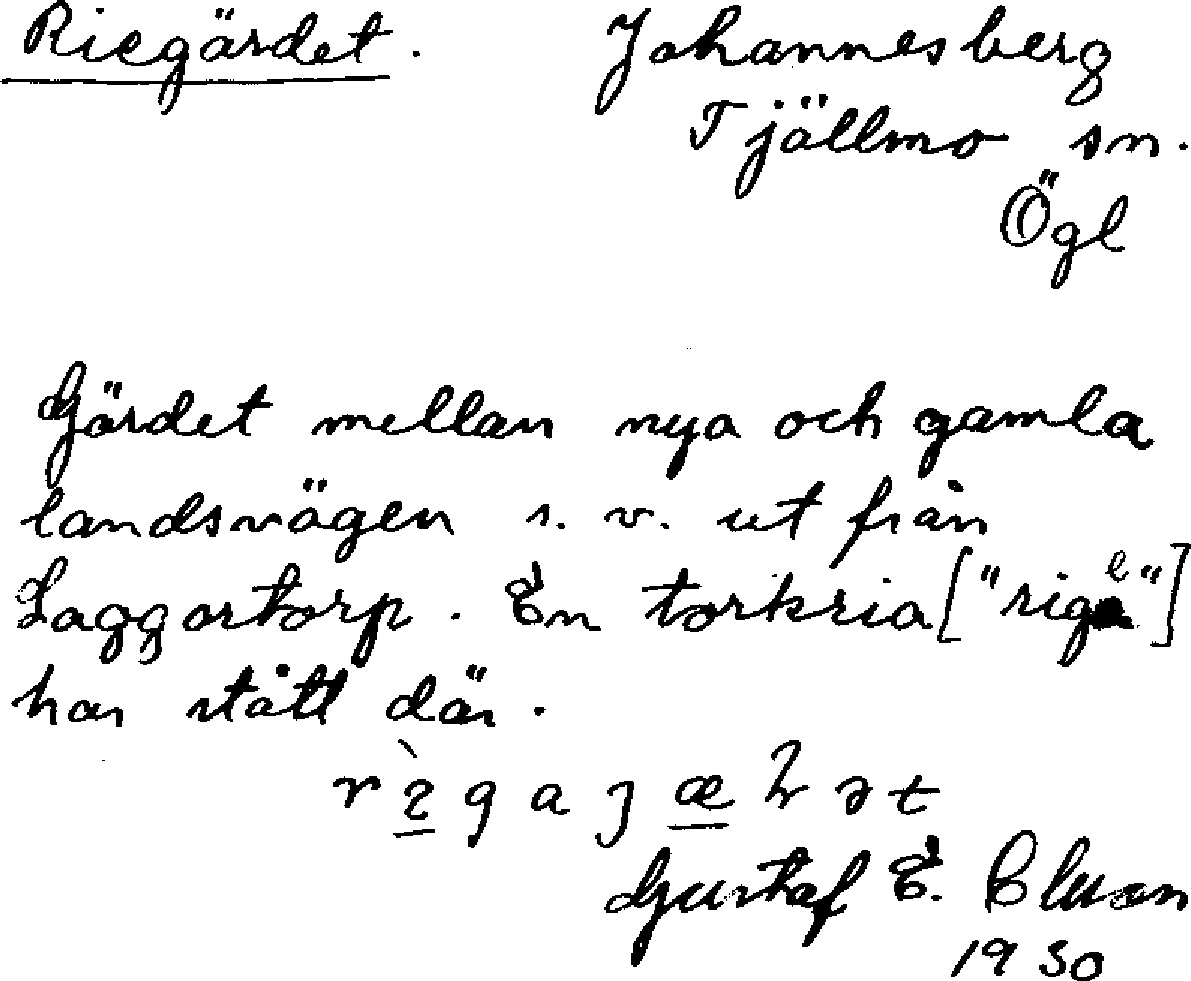 Riegärdet. Johannesberg
Tjällmo sn.
Ögl
Gärdet mellan nya och gamla
landsvägen s. v. ut från
Laggartorp. En torkria ["rige"]
har stått där.
Gustaf E.
1930